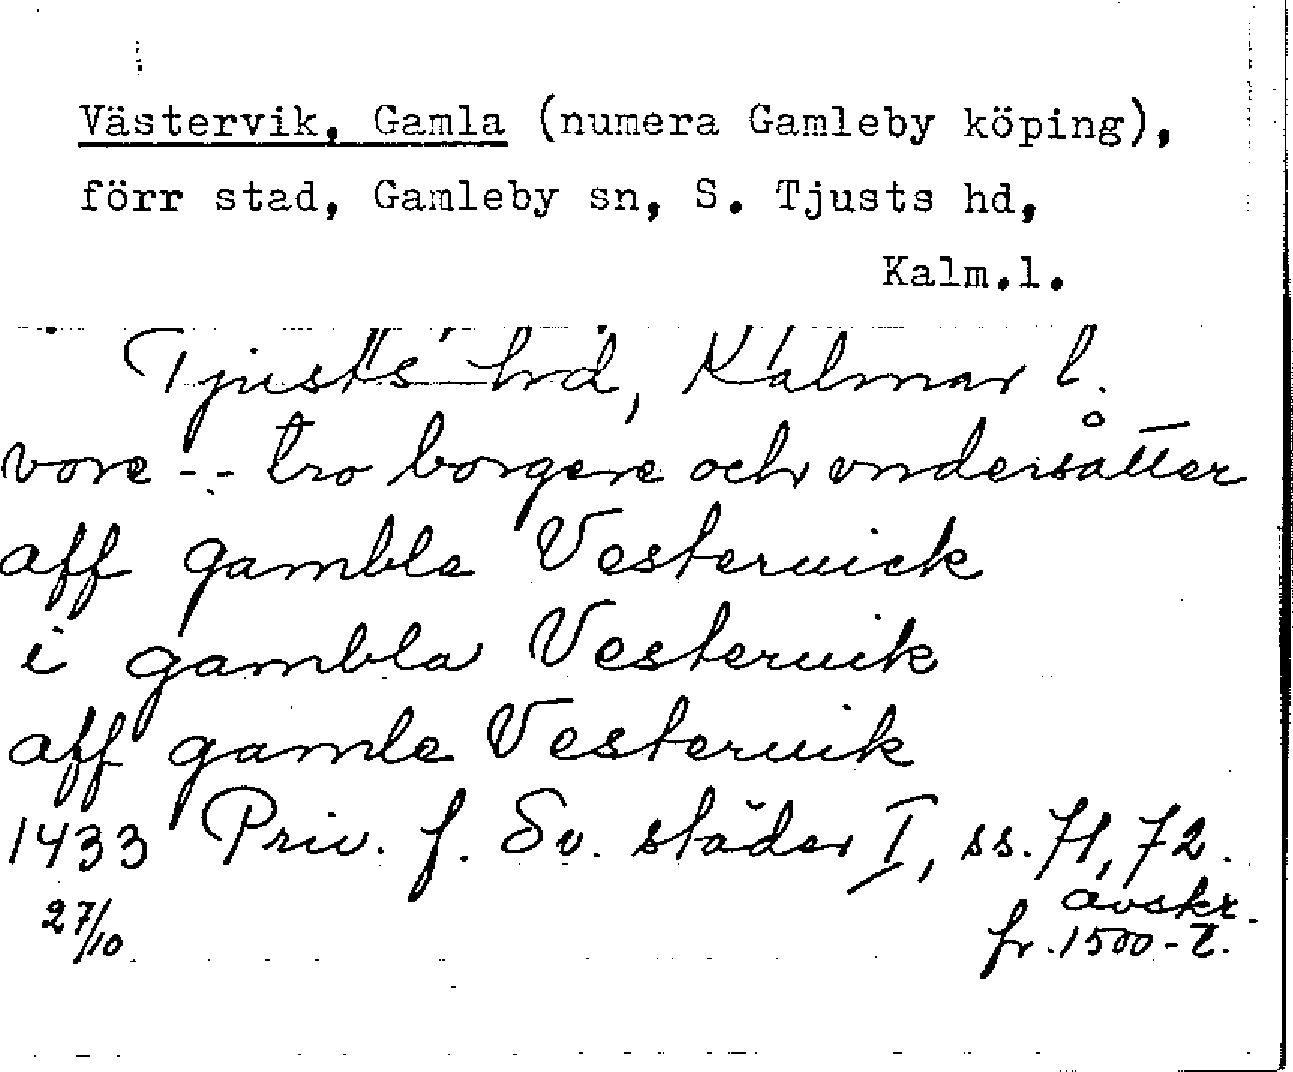 Västervik, Gamla (numera Gamleby köping),
förr stad, Gamleby sn, S. Tjusts hd,
Kalm.l.
Tjusts hd, Kalmar l.
vore -- tro borgere och vndersåtter
aff gamble Vesteruick
i gambla Vesteruik
aff gamle Vesteruik
1433 Priv. f. Sv. städer I, ss. 71, 72.
27/10 avskr.
fr. 1500-t.